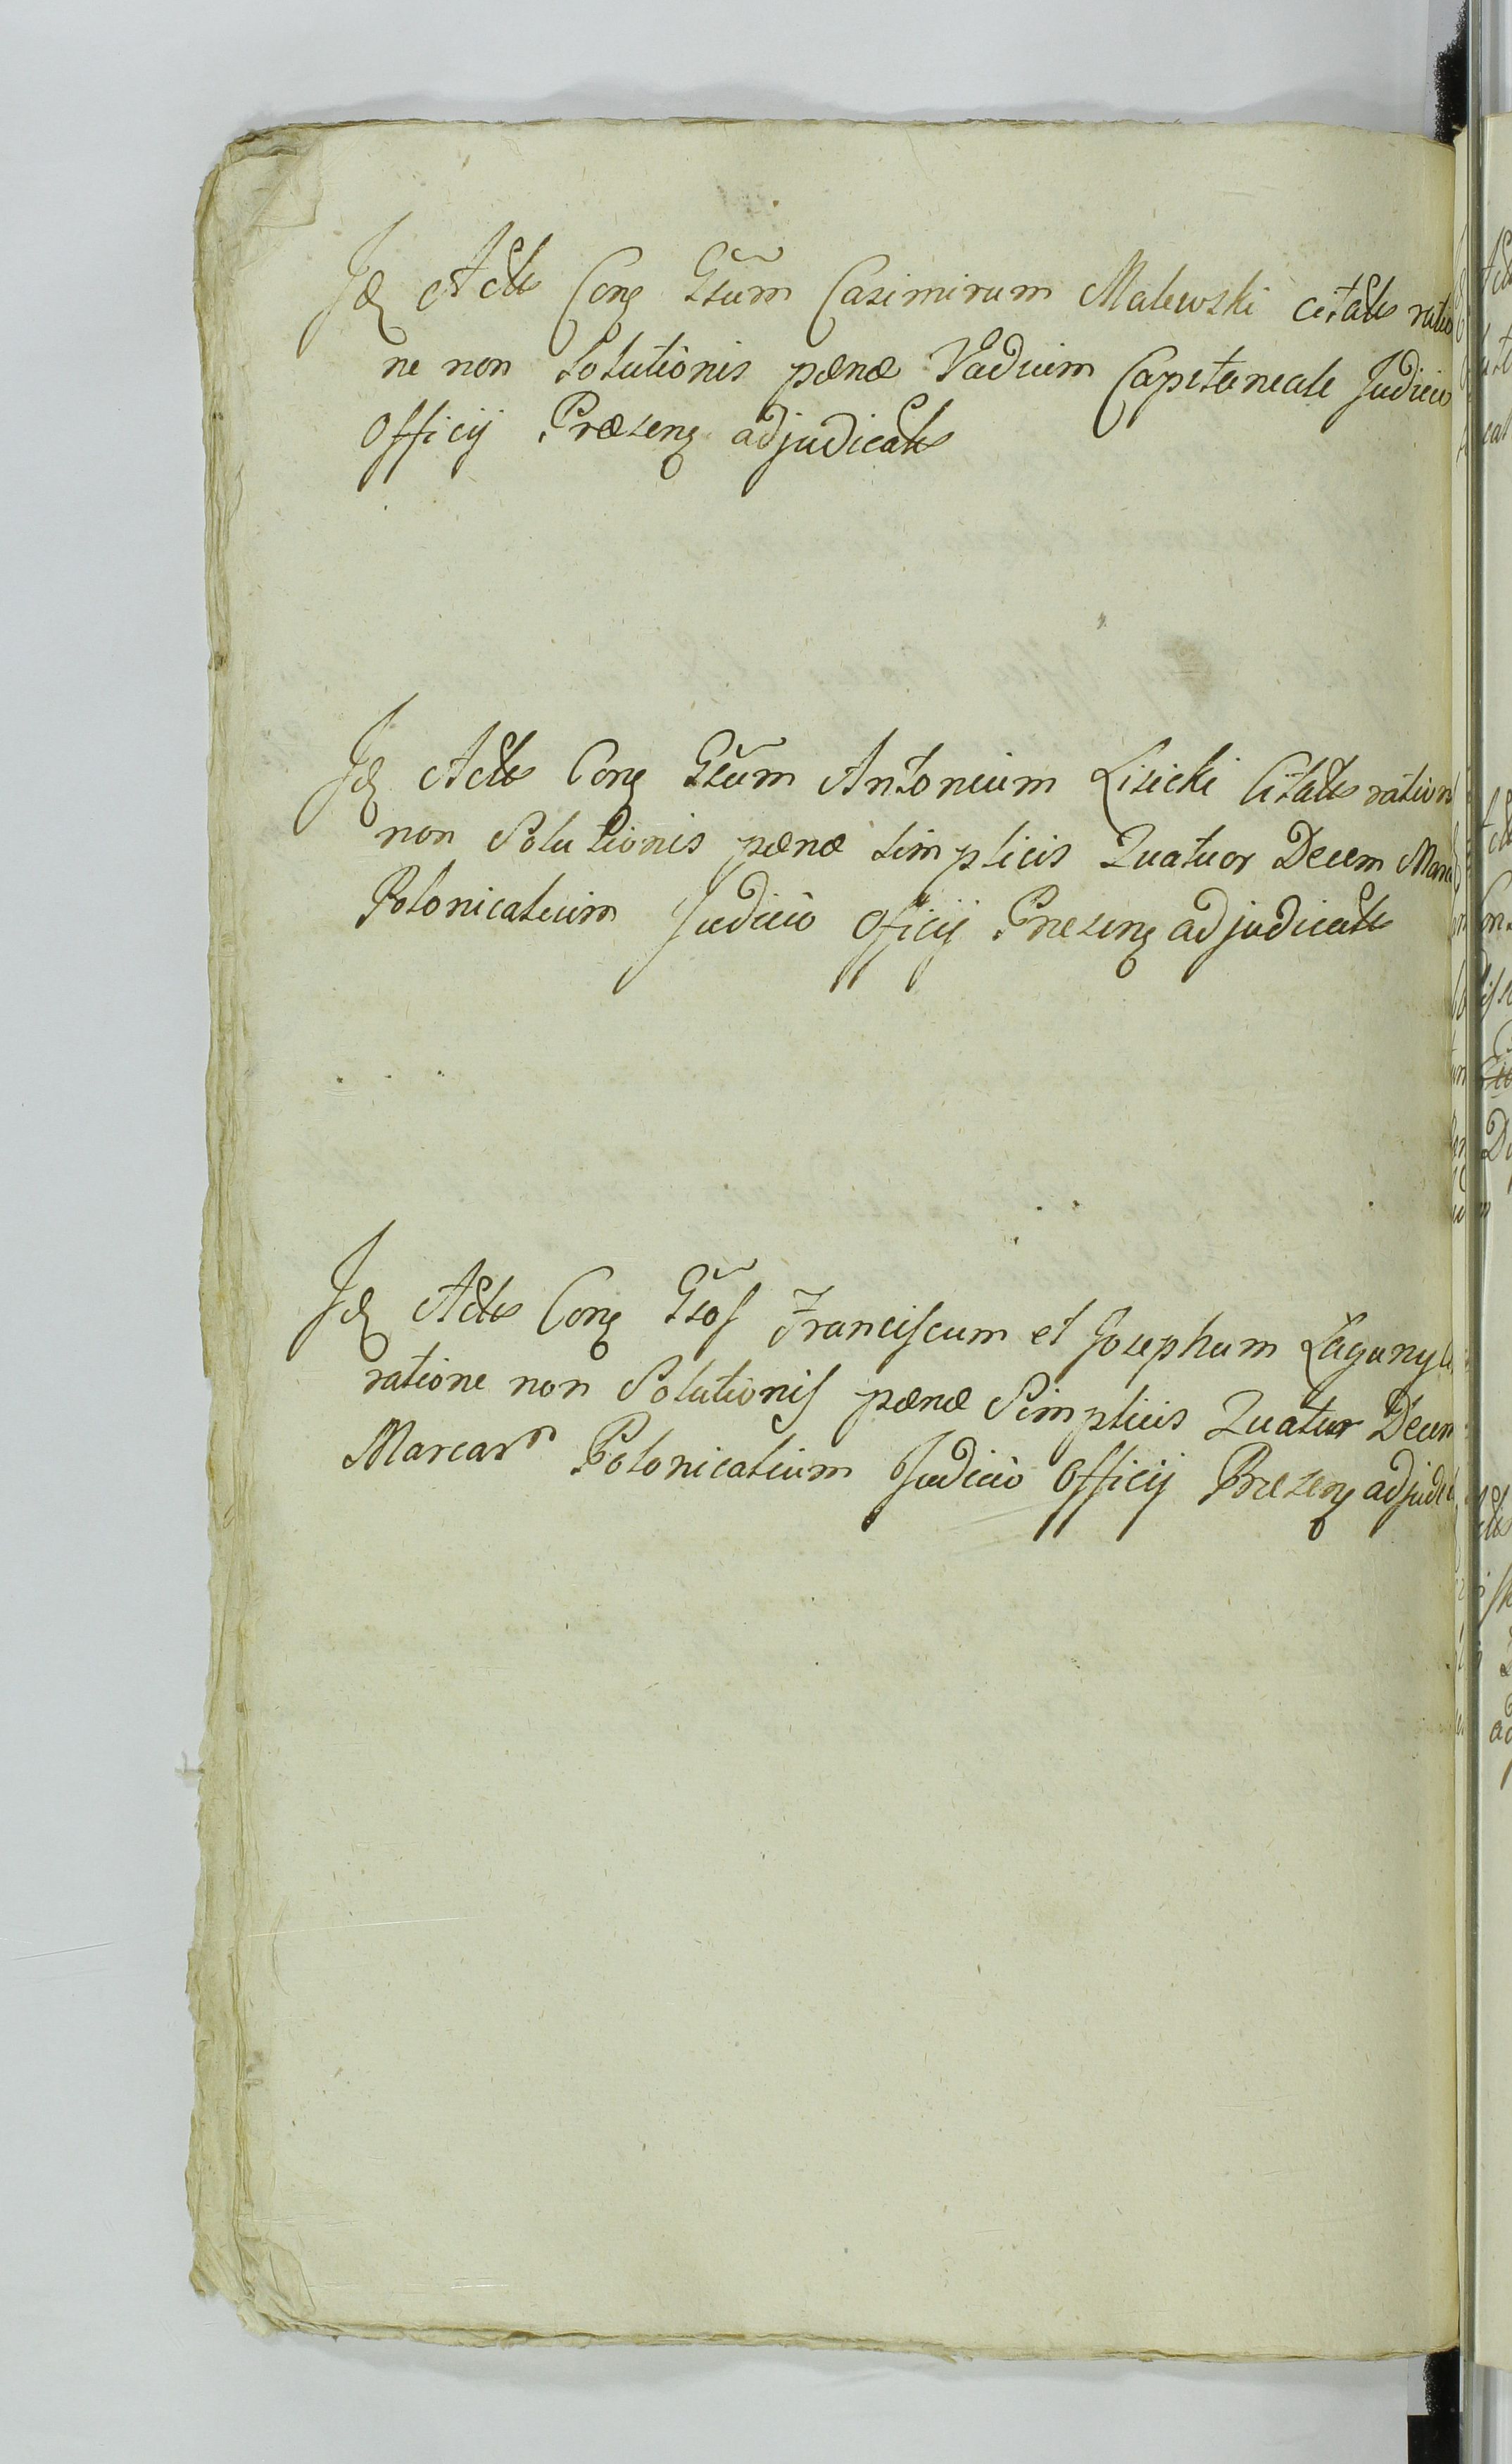 Id Actor Con Gsum Casimirum Malewski citatus ratio
ne non Solutionis pænæ Vadium Capitaneale Judicio
Officij Præsen adjudicatæ
Id Actor Con Gsum Antonium Lisicki Citatus ration
non Solutionis pænæ simplicis Quatuor Decem Marc
Polonicalium Judicio Officij Præsen adjudicatæ
Id Actor Con Gsos Franciscum et Josephum
ratione non Solutionis pænæ Simplicis Quatuor Decem
Marcar Polonicalium Judicio Officij Præsen adjudic